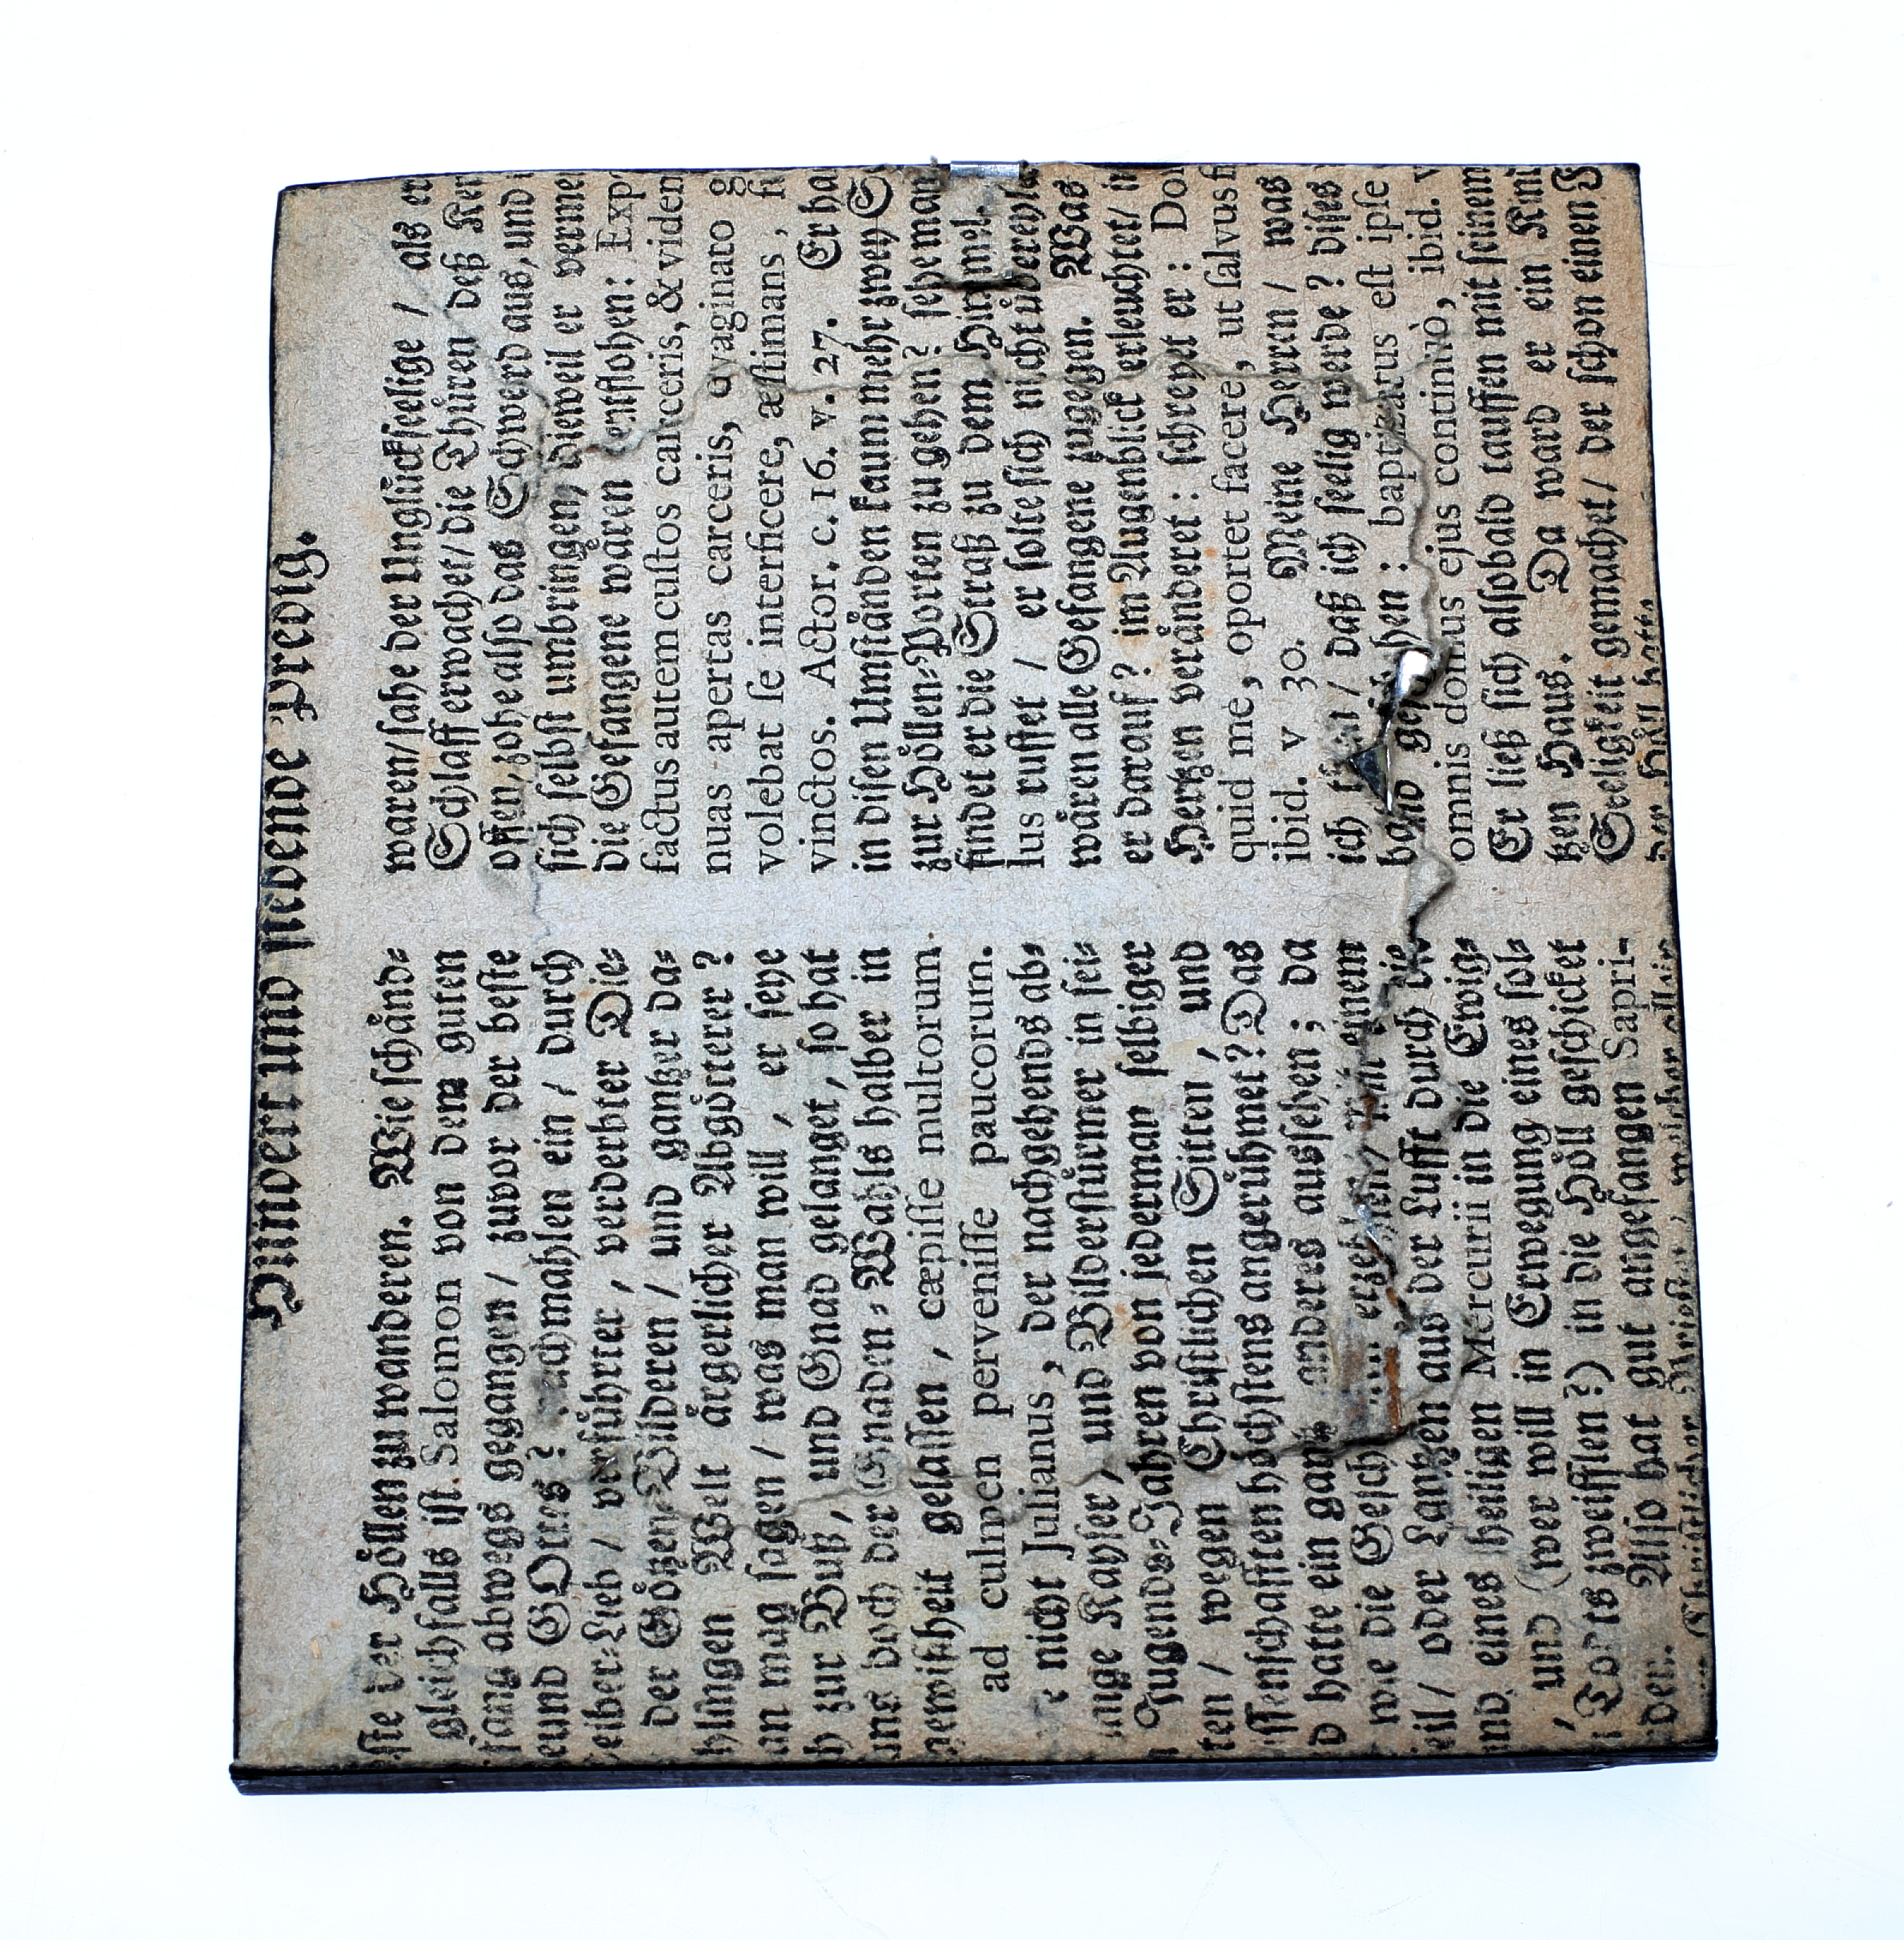 Hundert und siebende Predig.
der Höllen zu wanderen. Wie schänd-
gleichfalls ist Salomon von dem guten
abwegs gegangen / zuvor der beste
GOttes? nachmahlen ein / durch
eiber-Lieb / verführter / verderbter Die-
der Götzen-Bilderen / und gantzer da-
Welt ärgerlicher Abgötterer?
mag sagen / was man will / er seye
zur Buß / und Gnad gelanget / so hat
doch der Gnaden-Wahls halber in
gelassen / cœpisse multorum
ad culmen pervenisse paucorum.
nicht Julianus / der nachgehends ab-
Kayser / und Bilderstürmer in sei-
Jugends-Jahren von jederman selbiger
ten / wegen Christlichen Sitten / und
ssenschafften höchstens angerühmet? Das
hatte ein gantz anderes aussehen; da
wie die Gesch erzehlen / mit einem
eil / oder Lantzen aus der Lufft durch die
eines heiligen Mercurii in die Ewig-
und (wer will in Erwegung eines sol-
Tods zweifflen?) in die Höll geschicket
den. Also hat gut angefangen Sapri-
Christlicher Priester / welcher allein
waren / sahe der Unglückseelige / als er
Schlaff erwachet / die Thüren deß Ker
offen / zohe also das Schwerd aus, und
sich selbst umbringen / dieweil er vermei
die Gefangene wären entflohen: Exp
factus autem custos carceris, & viden
nuas apertas carceris, evaginato g
volebat se interficere, æstimans, fu
vinctos. Actor. c. 16. v. 27. Er ha
in disen Umständen kaum mehr zwey S
zur Höllen-Porten zu gehen? sehe man
findet er die Straß zu dem Himmel.
lus ruffet / er solte sich nicht übereyle
wären alle Gefangene zugegen. Was
er darauf? im Augenblick erleuchtet / i
Hertzen veränderet: schreyet er: Do
quid me, oportet facere, ut salvus fi
ibid. v 30. Meine Herren / was
ich thun / daß ich seelig werde? dises
bald geschehen: baptizatus est ipse
omnis domus ejus continuò, ibid. v
Er ließ sich alsobald tauffen mit seinem
tzen Haus. Da ward er ein Kind
Seeligkeit gemachet / der schon einen F
der Höll hatte.